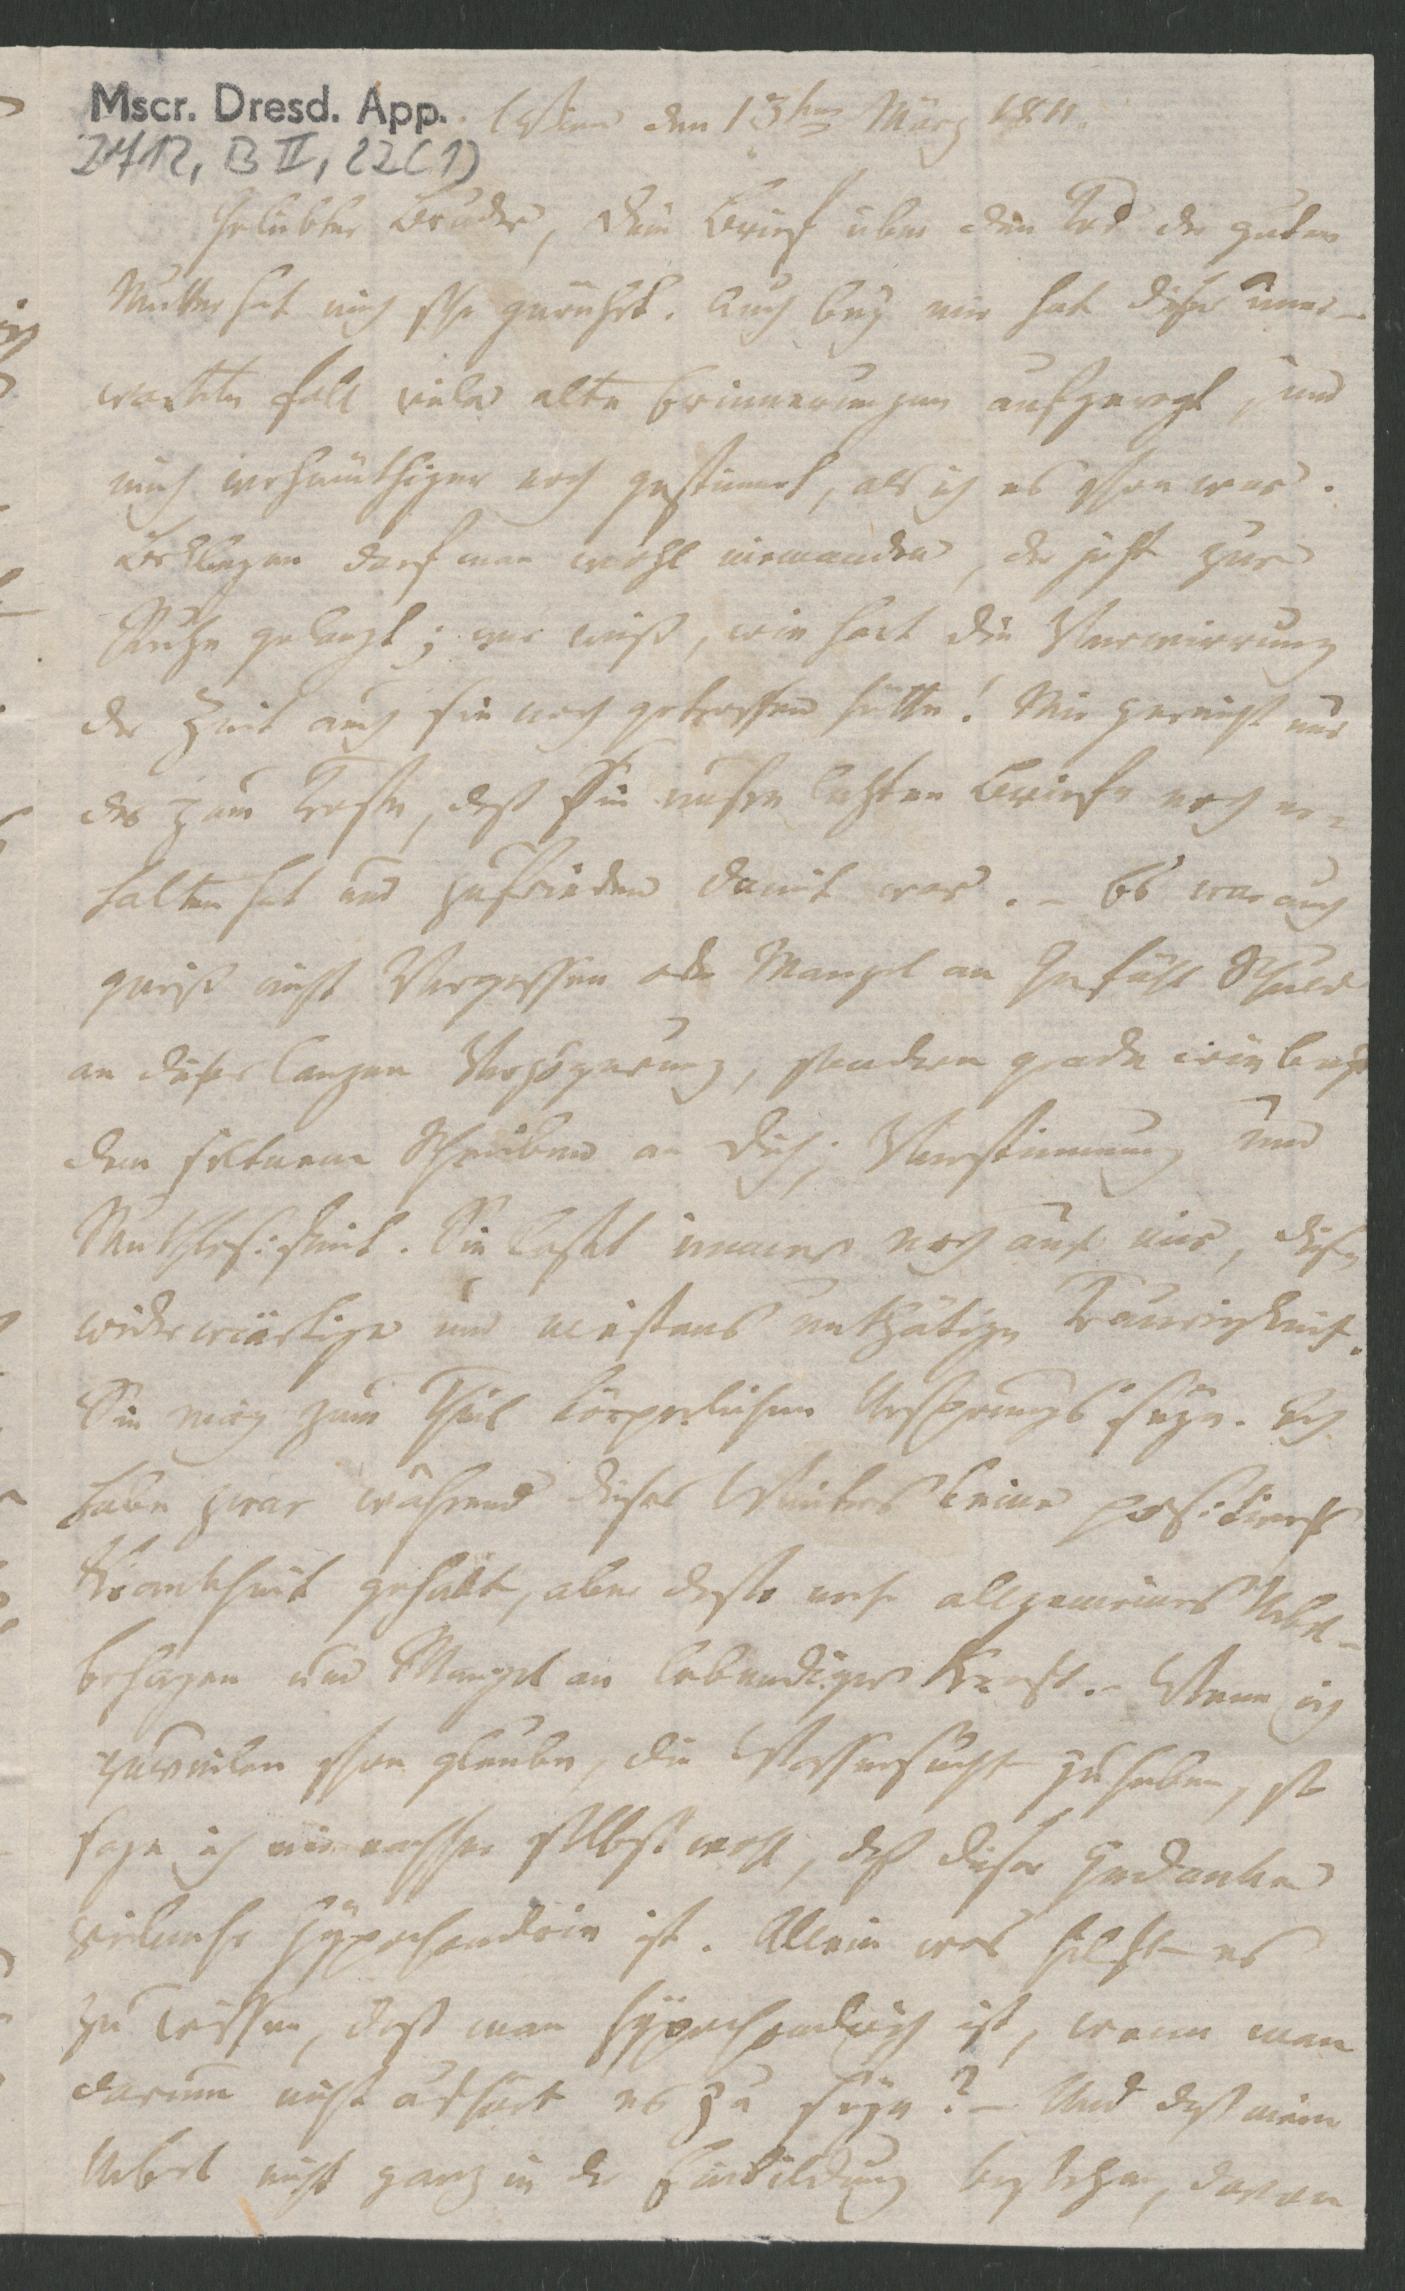 Mscr. Dresd. App.
2712, B II, 22(1)
Wien den 13ten März 1811.
Geliebter Bruder, Dein Brief über den Tod der guten
Mutter hat mich sehr gerührt. Auch bey mir hat dieser uner-
wartete Fall viele alte Erinnerungen aufgeregt, und
mich wehmüthiger noch gestimmt, als ich es schon war.
Beklagen darf man wohl niemanden, der jetzt zur
Ruhe gelangt; wer weiß, wie hart die Verwirrung
der Zeit auch sie noch getroffen hätte! Mir gereicht nur
das zum Troste, daß Sie unsre letzten Briefe noch er-
halten hat und zufrieden damit war. – Es war auch
gewiß nicht Vergessen oder Mangel an Gefühl Schuld
an dieser langen Verzögerung, sondern grade wie bey
dem seltnern Schreiben an Dich; Verstimmung und
Muthlosigkeit. Sie lastet immer noch auf mir, diese
widerwärtige und meistens unthätige Traurigkeit.
Sie mag zum Theil körperlichen Ursprungs seyn. Ich
habe zwar während dieses Winters keine positive
Krankheit gehabt, aber desto mehr allgemeines Uebel-
behagen und Mangel an lebendiger Kraft. – Wenn ich
zuweilen schon glaube, die Wassersucht zu haben, so
sage ich mir nachher selbst wohl, daß dieser Gedanke
vielmehr Hypochondrie ist. Allein was hilft es
zu wissen, daß man hypochondrisch ist, wenn man
darum nicht aufhört es zu seyn? – Und daß mein
Uebel nicht ganz in der Einbildung bestehe, davon